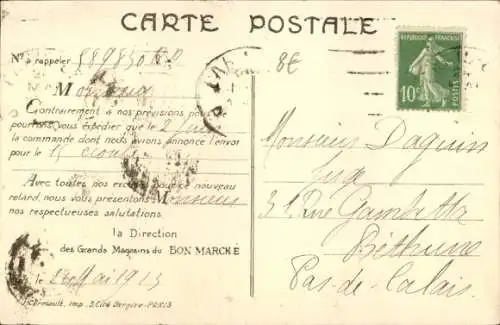 CARTE POSTALE
8E
REPUBLIQUE FRANÇAISE
10c
POSTES
N° à rappeler 889850
M onsieur
Contrairement à nos prévisions nous
pourrons vous expédier que le 2 Juin
la commande dont nous avions annoncé l'envoi
pour le 15 courant
Avec toutes nos excuses pour ce nouveau
retard, nous vous présentons Monsieur
nos respectueuses salutations.
la Direction
des Grands Magasins du BON MARCHÉ
le 23 Mai 1913
Imp. 3. Cité Bergère-PARIS
Monsieur Daquin
Juge
31 Rue Gambetta
Béthune
Pas-de-Calais